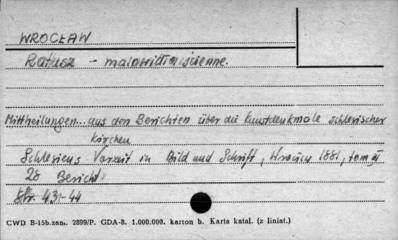 WROCŁAW
Ratusz – malowidła ścienne.
Mittheilungen... aus den Berichten über die Kunstdenkmäle schlesischer
Kirchen
Schlesiens Vorzeit in Bild und Schrift, Wrocław 1881, tom III
28 Bericht.
Str. 431-44
CWD B-15b.zam. 2899/P. GDA-8. 1.000.000. karton b. Karta katal. (z liniat.)